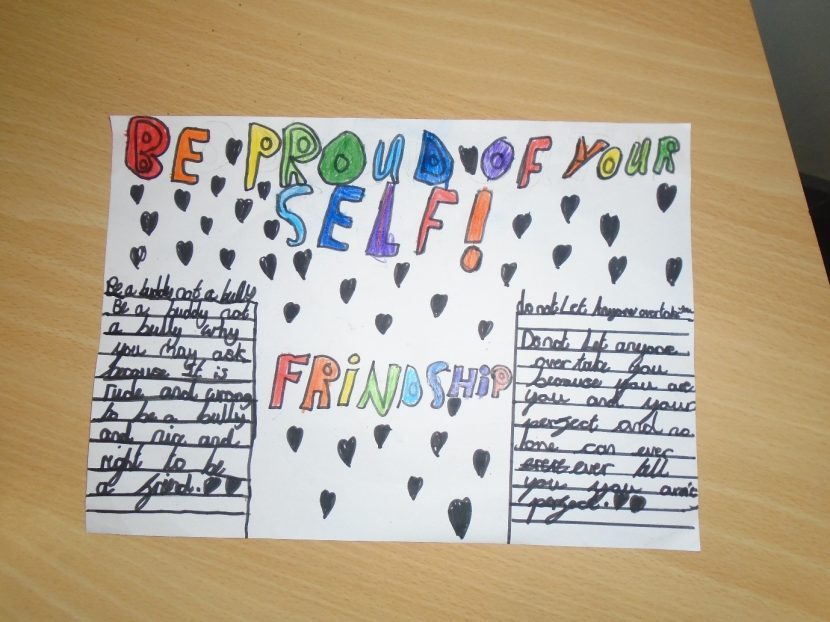 BE PROUD OF YOUR
SELF!
Be a buddy not a bully
Be a buddy not
a bully why
you may ask
because it is
rude and wrong
to be a bully
and nice and
right to be
a friend.
FRINDSHIP
do not Let Anyone overtake
Do not Let anyone
overtake you
because you are
you and your
perject and no
one can ever
ever tell
you you arn't
perject.